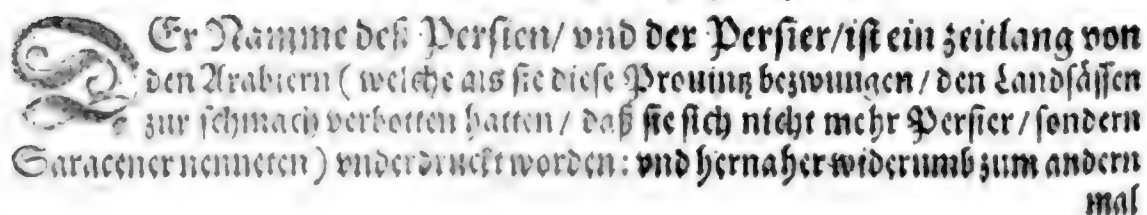 DEr Namme deß Persien/ vnd der Persier/ist ein zeitlang von
den Arabiern ( welche als sie diese Prouintz bezwungen / den Landsässen
zur schmach verbotten hatten / daß sie sich nicht mehr Persier / sondern
Saracener nenneten ) vnderdruckt worden: vnd hernaher widerumb zum andern
mal